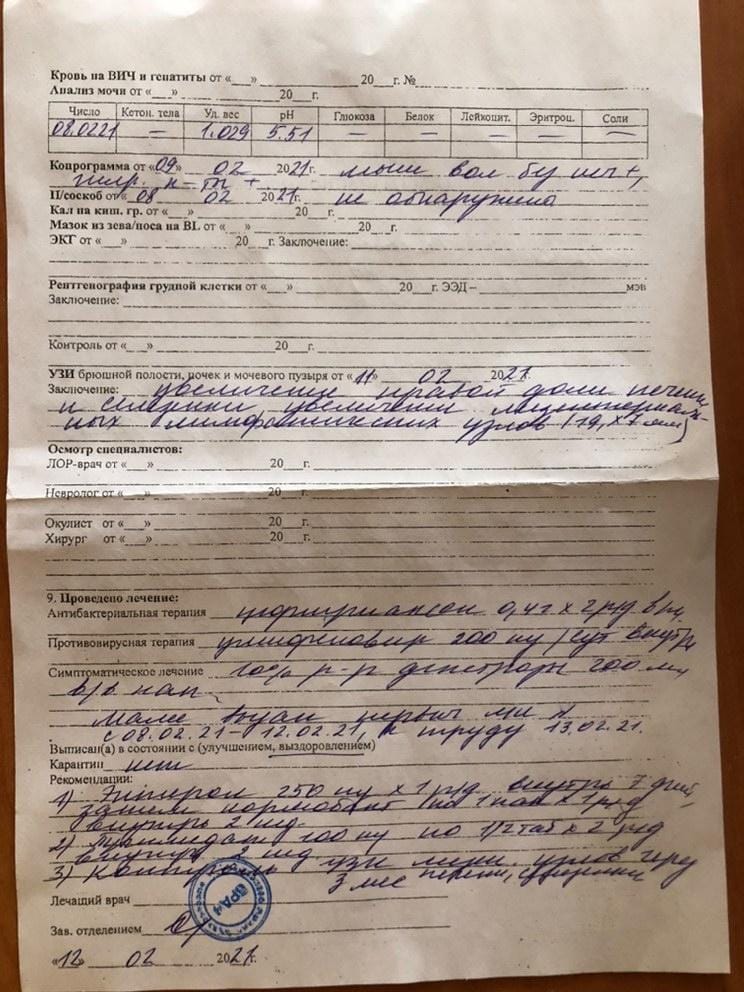 Кровь на ВИЧ и гепатиты от «___» ____________ 20___г. №____________
Анализ мочи от «___» ____________ 20___г.
Число Кетон. тела Уд. вес pH Глюкоза Белок Лейкоцит. Эритроц. Соли
08.0221 — 1.029 5.51 — — — — —
Копрограмма от «09» 02 2021г. мыш вол бу +,
П/соскоб от «08 02 2021г. не обнаружено
Кал на киш. гр. от «___» ____________ 20___г.
Мазок из зева/носа на BL от «___» ____________ 20___г.
ЭКГ от «___» ____________ 20___г. Заключение:
Рентгенография грудной клетки от «___» ____________ 20___г. ЭЭД – ____________мзв
Заключение:
Контроль от «___» ____________ 20___г.
УЗИ брюшной полости, почек и мочевого пузыря от «11» 02 2021г.
Заключение: увеличение правой доли печени
и селезенки увеличении мезентериаль-
ных лимфатических узлов (19, х 7 мм)
Осмотр специалистов:
ЛОР-врач от «___» ____________ 20___г.
Невролог от «___» ____________ 20___г.
Окулист от «___» ____________ 20___г.
Хирург от «___» ____________ 20___г.
9. Проведено лечение:
Антибактериальная терапия цефтриаксон 0,4г х 2 р/д
Противовирусная терапия умифеновир 200 /сут внутрь
Симптоматическое лечение 10% р-р декстрозы 200 мл
в/в кап
Маме выдан
с 08.02.21 – 12.02.21, к труду 13.02.21.
Выписан(а) в состоянии с (улучшением, выздоровлением)
Карантин нет
Рекомендации:
1) 250 х 1 р/д внутрь 7 дней,
затем нормобакт по 1 пак х 1 р/д
внутрь 2 нед.
2) 100 по 1/2 таб х 2 р/д
внутрь 2 нед
3) Контроль УЗИ узлов через
3 мес печени, селезенки
Лечащий врач
ВРАЧ
Зав. отделением
«12» 02 2021г.